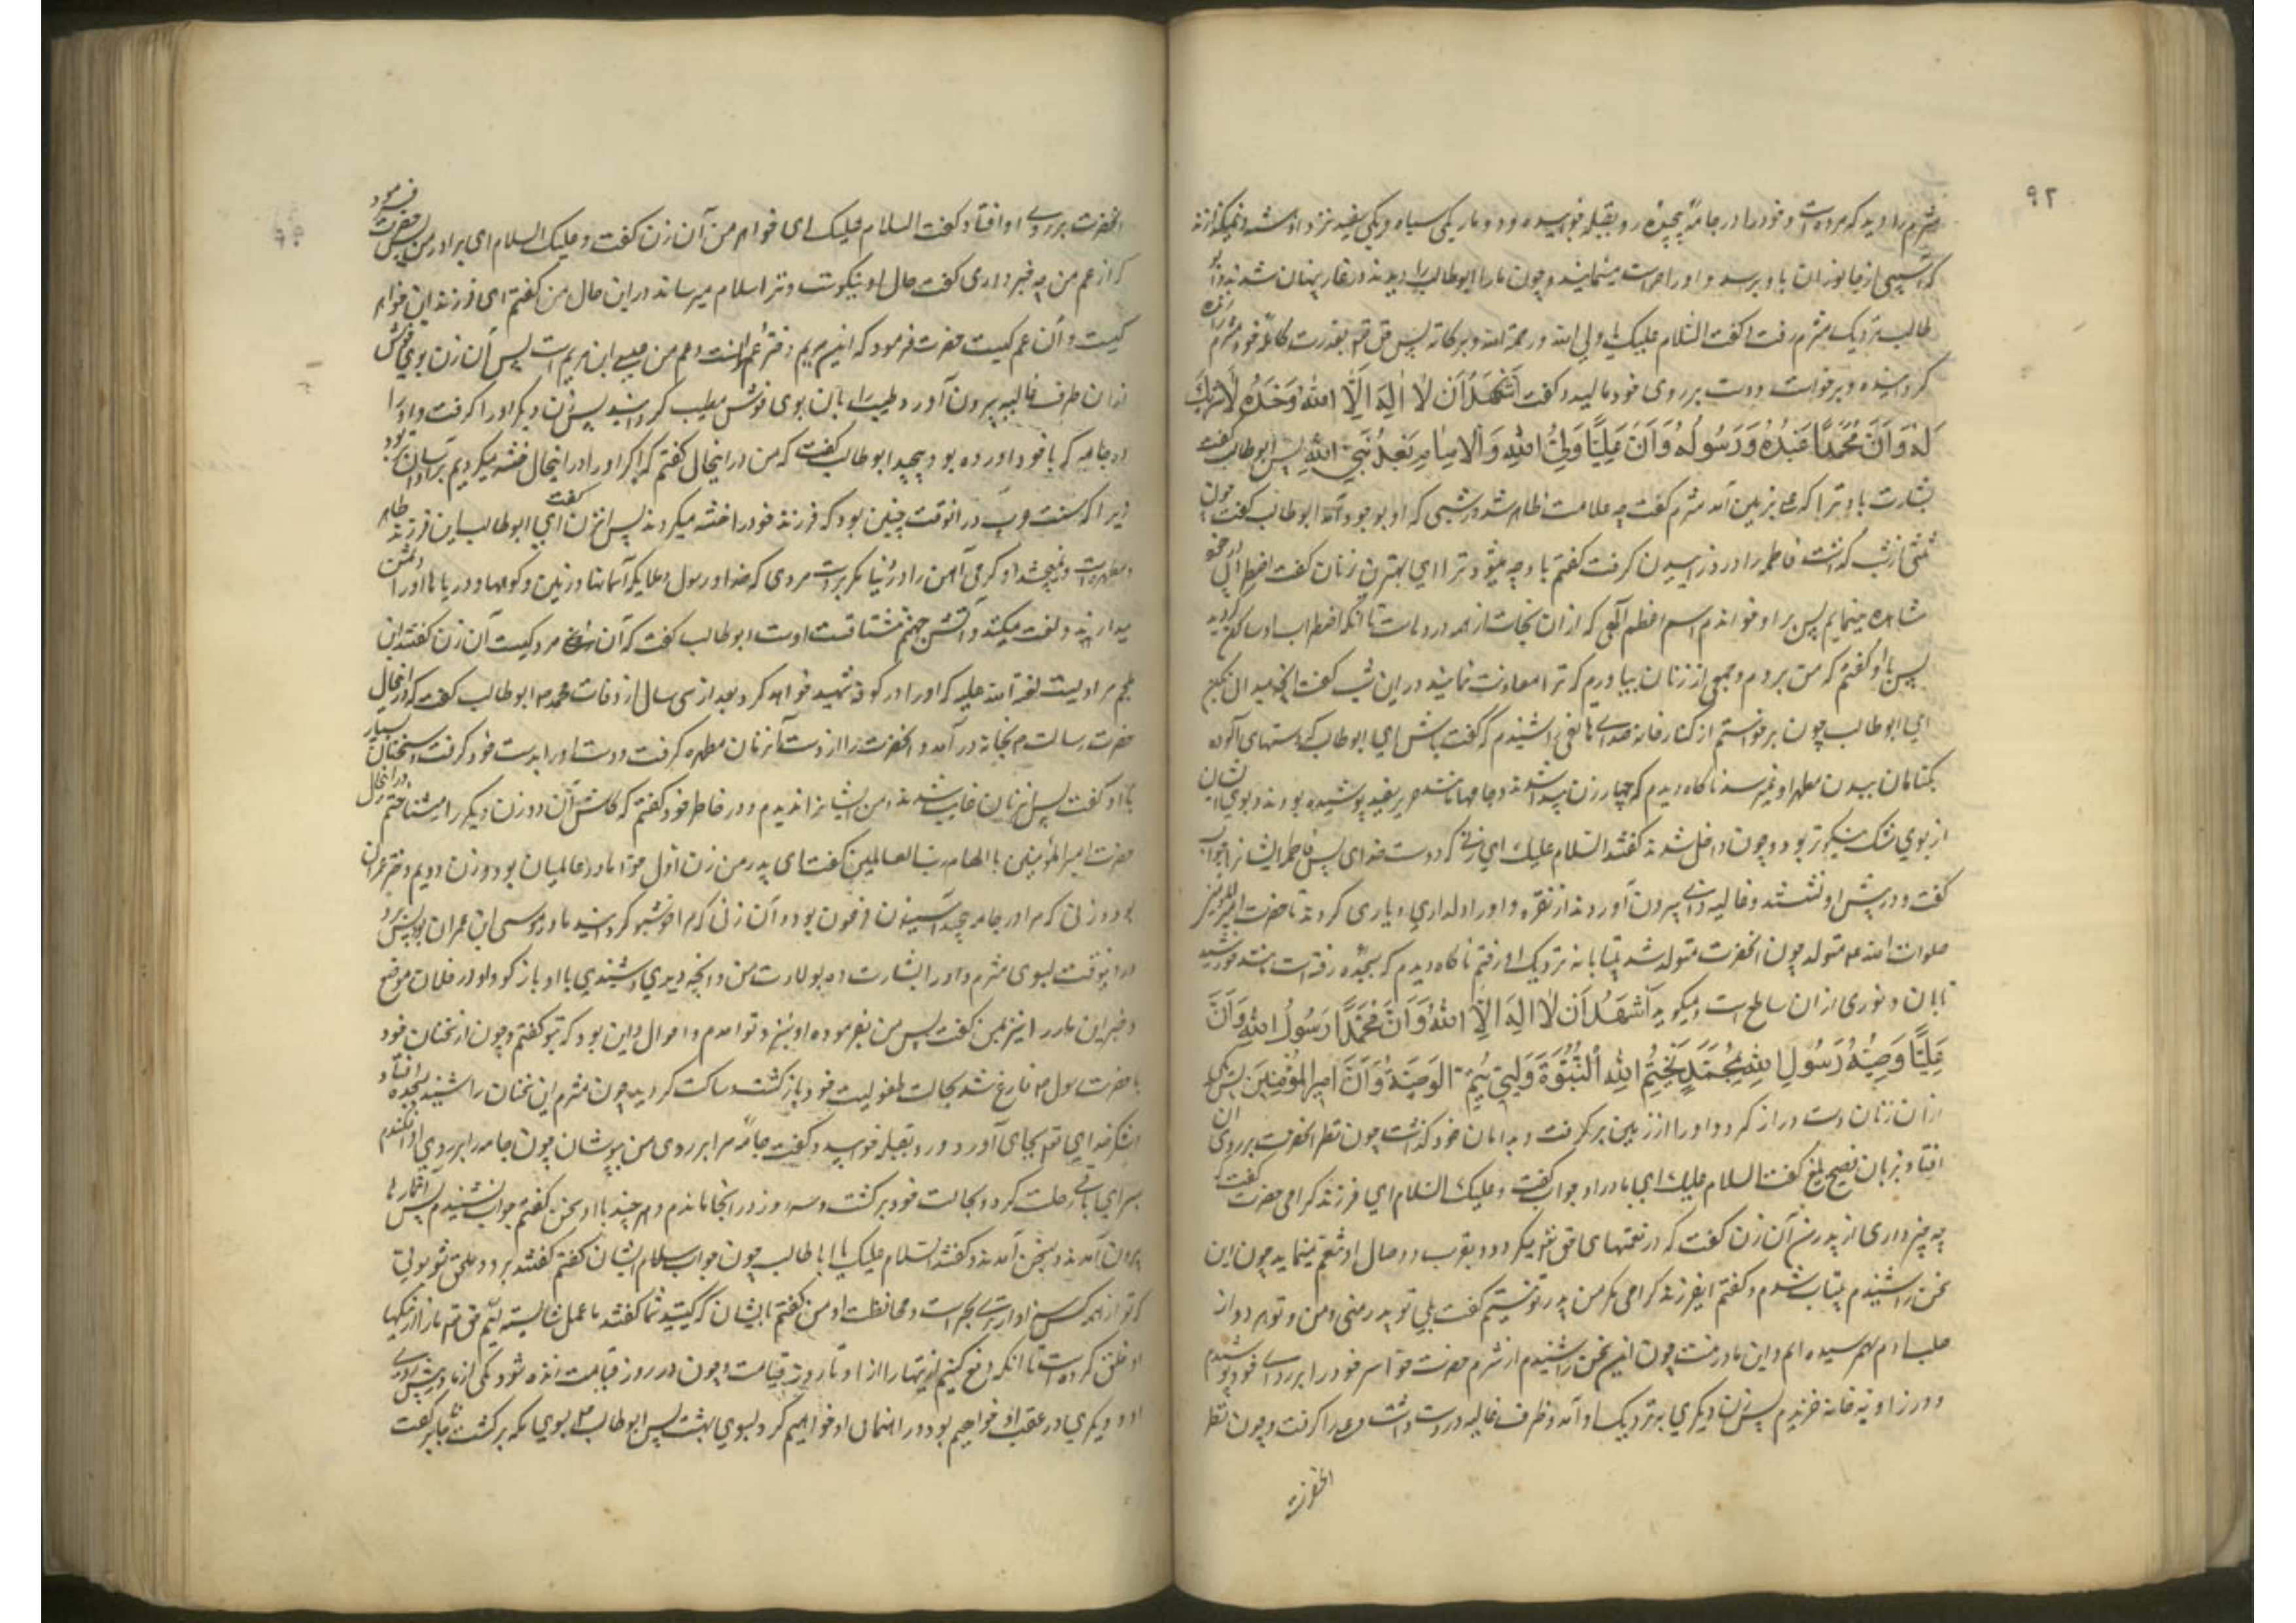 ۹۲
مثرم را دید که مرده است و خود را در جامه پیچیده رو بقبله خوابیده و دو مار یکی سیاه و یکی سفید نزد او نشسته و نمیگذارند
که آسیبی از جانوران باو برسد و او را حراست مینمایند و چون مارها ابوطالب را دیدند در غار پنهان شدند و ابو
طالب نزدیک مثرم رفت و گفت السلام علیک یا ولی الله و رحمة الله و برکاته پس حق تم بقدرت کامله خود مثرم را زنده
گردانیده و برخواست و دست بر روی خود مالید و گفت اَشْهَدُ اَنْ لا اِلهَ اِلَّا اللهُ وَحْدَهُ لا شَرِیکَ
لَهُ وَاَنَّ مُحَمَّدًا عَبْدُهُ وَرَسُولُهُ وَاَنَّ عَلِیًّا وَلِیُّ اللهِ وَالْاِمَامُ بَعْدَ نَبِیِّ اللهِ پس ابوطالب گفت
بشارت باد ترا که علی بزمین آمد مثرم گفت چه علامت ظاهر شد در شبی که او بوجود آمد ابوطالب گفت چون
ثلثی از شب گذشت فاطمه را درد زاییدن گرفت گفتم باو چه میشود ترا ای بهترین زنان گفت اضطرابی در خود
مشاهده مینمایم پس بر او خواندم اسم اعظم الهی که ازان نجات از همه دردهاست تا آنکه اضطراب او ساکن گردید
پس باو گفتم که من بروم و جمعی از زنان بیاورم که ترا معاونت نمایند در این شب گفت آنچه میدانی بکن
ای ابوطالب چون برخواستم از کنار خانه صدای هاتفی را شنیدم که گفت باش ای ابوطالب که دستهای آلوده
بگناهان ببدن مطهر او نمیرسد ناگاه دیدم که چهار زن پیدا شدند و جامها مانند حریر سفید پوشیده بودند و بوی ایشان
از بوی مشک نیکوتر بود و چون داخل شدند گفتند السلام علیک ای زنی که دوست خدای پس فاطمه ایشان را جواب
گفت و در پیش او نشستند و غالیه دانی بیرون آوردند از نقره و او را دلداری و یاری کردند تا حضرت امیر المؤمنین
صلوات الله علیه متولد چون آنحضرت متولد شد بیتابانه نزدیک او رفتم ناگاه دیدم که بسجده رفته است مانند خورشید
تابان و نوری ازان ساطع است و میگوید اَشْهَدُ اَنْ لا اِلهَ اِلَّا اللهُ وَاَنَّ مُحَمَّدًا رَسُولُ اللهِ وَاَنَّ
عَلِیًّا وَصِیُّهُ رَسُولِ اللهِ بِمُحَمَّدٍ یَخْتِمُ اللهُ النُّبُوَّةَ وَبِی یُتِمُّ الْوَصِیَّةَ وَاَنَا اَمِیرُ الْمُؤْمِنِینَ پس یکی
ازان زنان دست دراز کرد و او را از زمین برگرفت و بدامان خود گذاشت چون نظر آنحضرت بر روی آن
افتاد بزبان فصیح بلیغ گفت السلام علیک ای مادر او جواب گفت و علیک السلام ای فرزند گرامی حضرت گفت که
چه خبر داری از پدرم آن زن گفت که در نعمتهای حق تم میگردد و بقرب و وصال او تنعم مینماید چون این
سخن را شنیدم بیتاب شدم و گفتم ای فرزند گرامی مگر من پدر تو نیستم گفت بلی تو پدر منی و من و تو هر دو از
صلب آدم بهم رسیده ایم و این مادر منست چون این سخن را شنیدم از شرم حضرت حوا سر خود را بر ردای خود پوشیدم
و در زاویه خانه خزیدم پس زن دیگری بنزدیک او آمد و ظرف غالیه در دست داشت و علی را گرفت و چون نظر
آنحضرت
آنحضرت بر روی او افتاد گفت السلام علیک ای خواهر من آن زن گفت و علیک السلام ای برادر من پس حضرت فرمود
که از عم من چه خبر داری گفت حال او نیکوست و ترا سلام میرساند در این حال من گفتم ای فرزند این خواهر
کیست و آن عم کیست حضرت فرمود که این مریم دختر عمرانست و عم من عیسی ابن مریم است پس آن زن بوی خوش
ازان ظرف غالیه بیرون آورد و طیب را بآن بوی خوش مطیب گردانید پس زن دیگر او را گرفت و او را
در جامه که با خود آورده بود پیچید ابوطالب گفت که من در آنحال گفتم که اگر او را در اینحال ختنه میکردیم بر او آسان بود
زیرا که سنت عرب در آنوقت چنین بود که فرزند خود را ختنه میکردند پس آنزن گفت ای ابوطالب این فرزند طاهر
و مطهر است و نمیچشد او گرمی آهن را در دنیا مگر بر دست مردی که خدا و رسول و ملایکه آسمانها و زمین و کوهها و دریاها او را دشمن
میدارند و لعنت میکنند و آتش جهنم مشتاقست اوست ابوطالب گفت که آن مرد کیست آن زن گفتند ابن
ملجم مرادیست لعنة الله علیه که او را در کوفه شهید خواهد کرد بعد از سی سال از وفات محمد ص ابوطالب گفت که در آنحال
حضرت رسالت م بخانه در آمد و آنحضرت را از دست آنزنان مطهره گرفت و دست او را بدست خود گرفت و سخنان بسیار
با او گفت پس آن زنان غایب شدند و من ایشان را ندیدم و در خاطر خود گفتم که کاش آن دو زن دیگر را میشناختم در آنحال
حضرت امیر المؤمنین با الهام رب العالمین گفت ای پدر من زن اول حوا مادر عالمیان بود و زن دویم دختر عمران
بود و زنی که مرا در جامه پیچید آسیه زن فرعون بود و آن زنی که مرا خوشبو گردانید مادر موسی ابن عمران بود پس برو
در اینوقت بسوی مثرم و او را بشارت ده بولادت من و آنچه دیدی و شنیدی با او باز گو و او در فلان موضع
و خبر این مار را نیز بمن گفت پس من بفرموده او بنزد تو آمدم و احوال این بود که بتو گفتم و چون از سخنان خود
با حضرت رسول ص فارغ شد بحالت طفولیت خود بازگشت و ساکت گردید چون مثرم این سخنان را شنید بسجده افتاد
و شکر خدای تم بجای آورد و رو بقبله خوابید و گفت جامه مرا بر روی من بپوشان چون جامه را بر روی او افکندم
بسرای باقی رحلت کرد و بحالت خود برگشت و سه روز در آنجا ماندم و هر چند با او سخن گفتم جواب نشنیدم پس آن مارها
بیرون آمدند و بسخن آمدند و گفتند السلام علیک یا ابا طالب چون جواب سلام ایشان گفتم گفتند برو و ملحق شو بولی
که تو از همه کس سزاوارتری بحراست و محافظت او من گفتم با ایشان که کیستید شما گفتند ما عمل شایسته اویم حق تم ما را از نیکیها
او خلق کرده است تا آنکه دفع کنیم اذیتها را از او تا روز قیامت و چون در روز قیامت زنده شود یکی از ما در پیش روی
او و دیگری در عقب او خواهیم بود و راهنمای او خواهیم کرد بسوی بهشت پس ابوطالب بسوی مکه برگشت جابر گفت